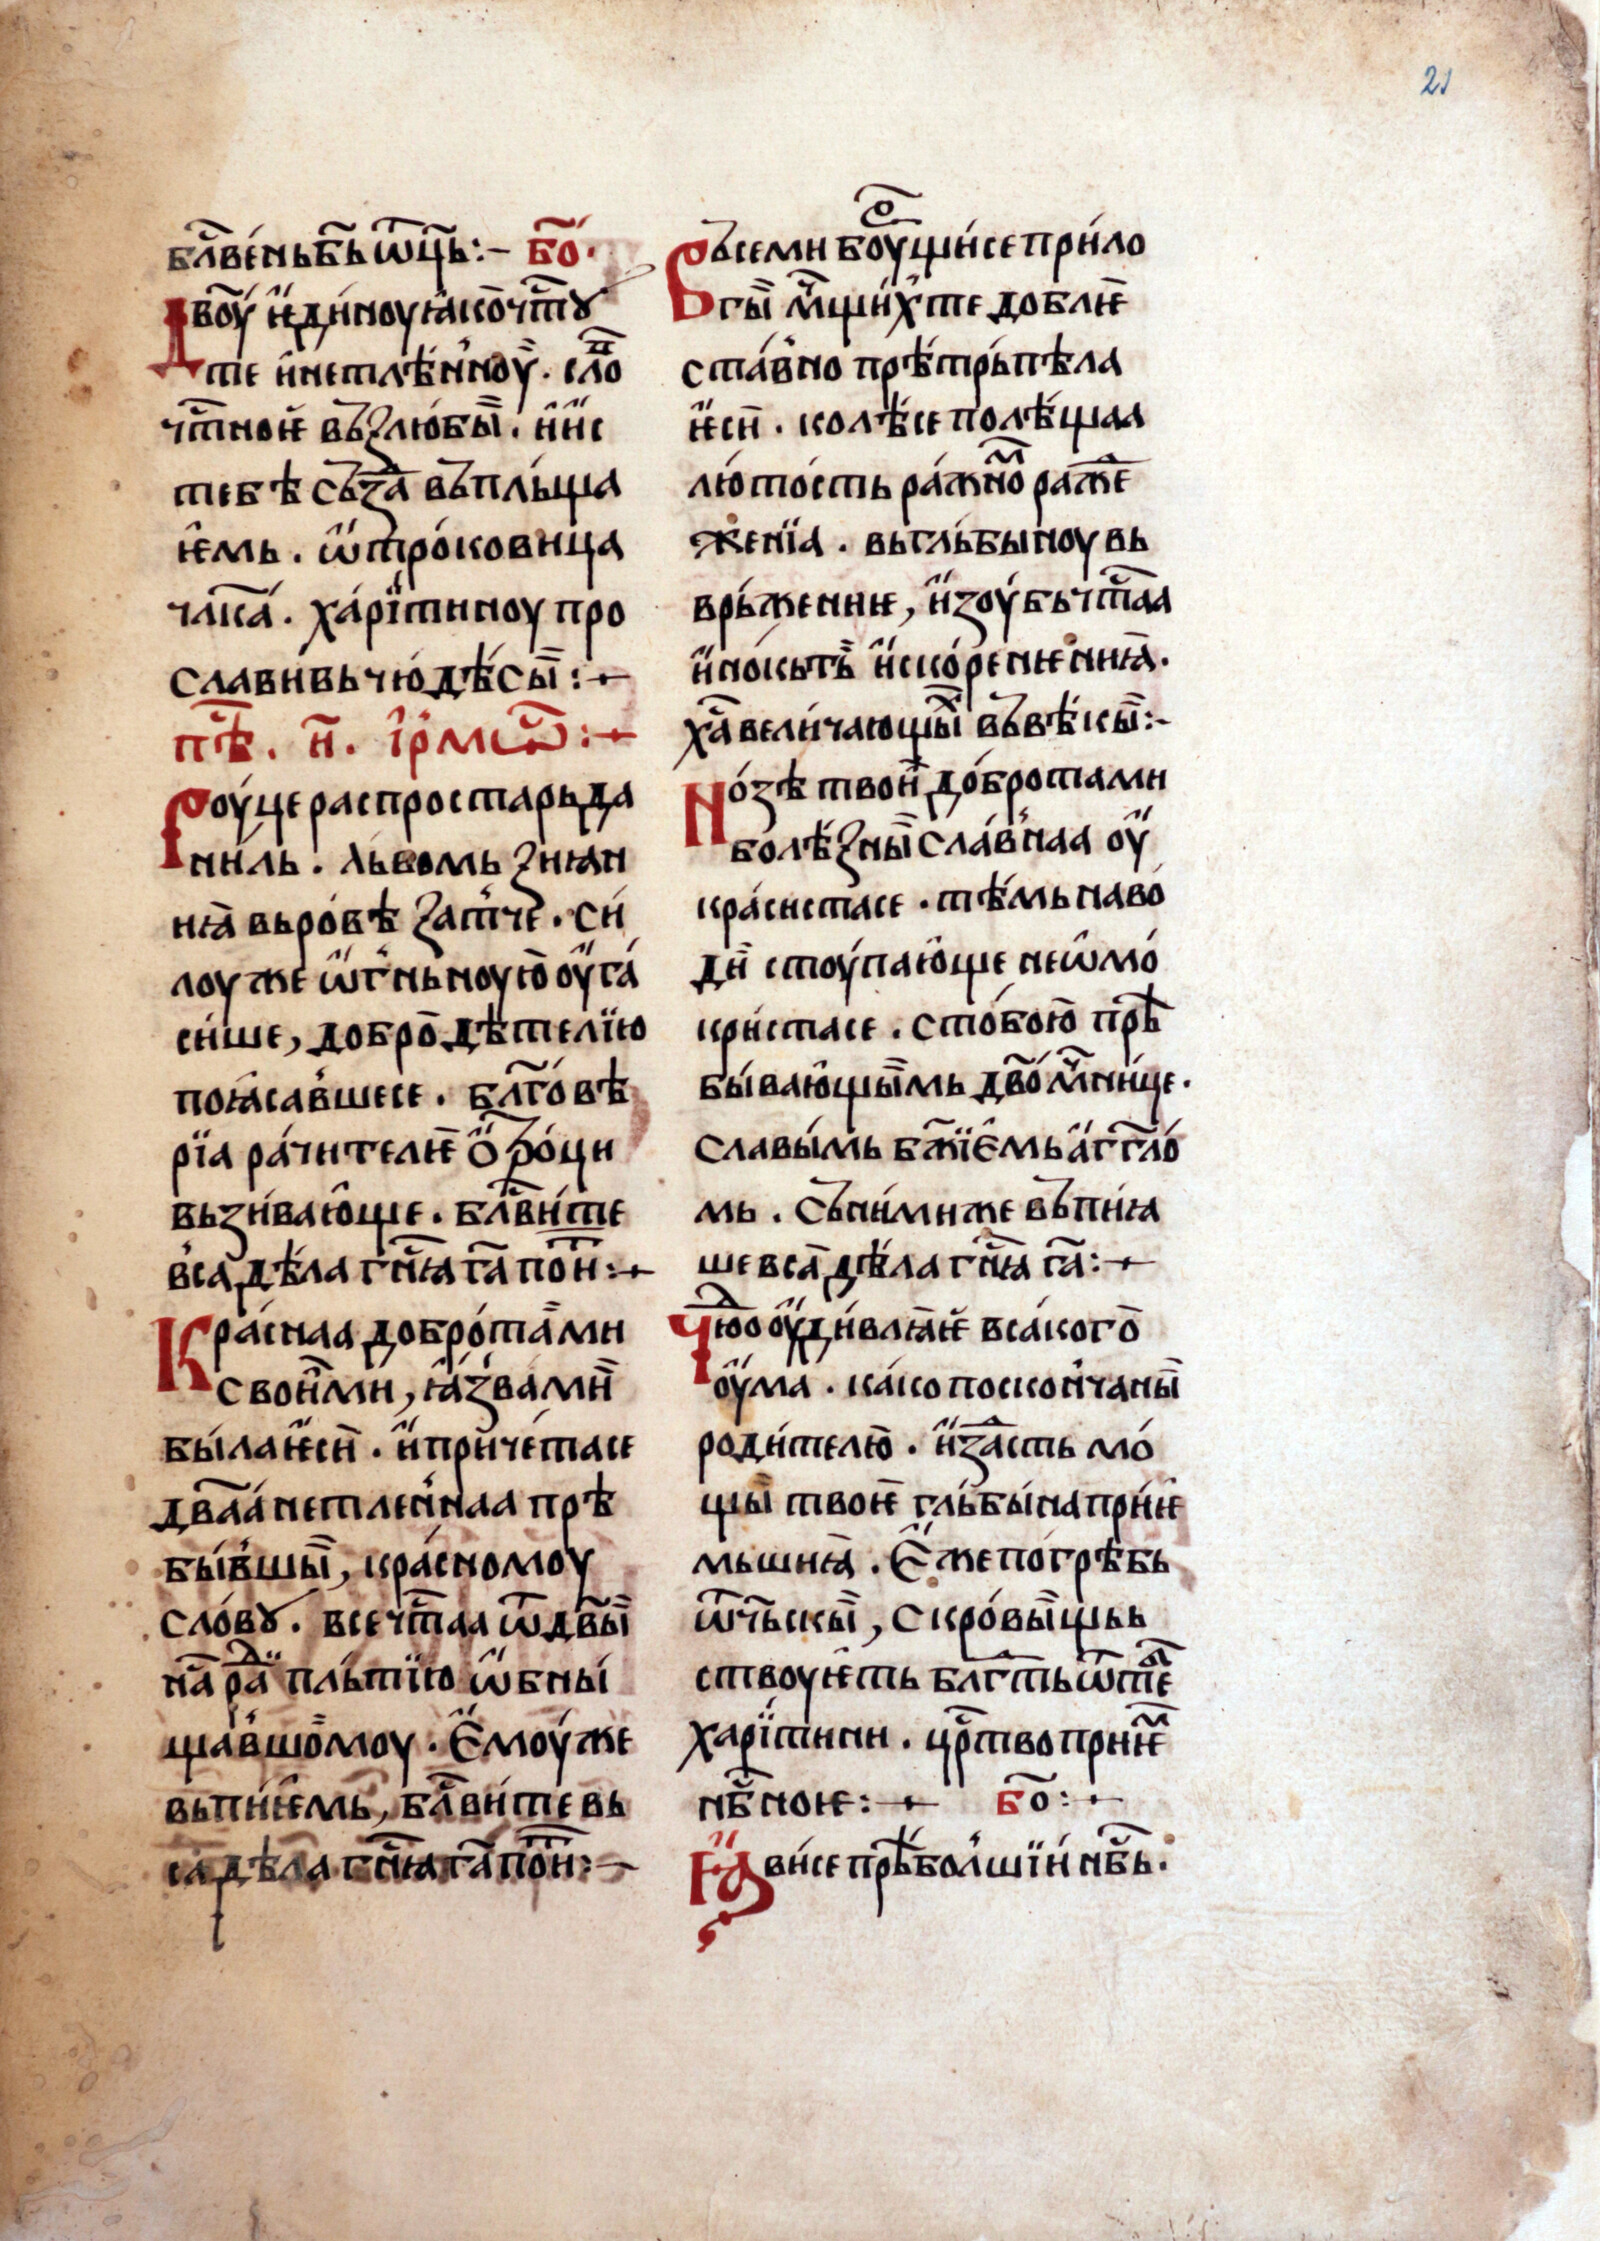 21
бл҃ве́нь б҃ь ѿц҃ь:– бо҃.
Двоу́ ѥди́ноу ꙗ́ко чт҃оу
те и҆ нетлѣ́нноу. сло
чт҃ноѥ въꙁлю́бы. и҆ и҆с
тебѐ съꙁа̀ въплъ́ща
ѥмь. ѿтро́ковица
чл҃ка́. ха́рїтиноу про
слави́вь чю́дѣсы:–
пѣ҃. и҃. і҆рмѡ҃:–
Роу́це распростарь да
ни́ль. львомь ꙁиꙗи
ниꙗ̀ вьро́вѣ ꙁат҆че. си́
лоу же ѡ҆гньноую̀ оу҆га́
си́ше, добро̀дѣтелїю
поꙗ́савшесе. бл҃го́вѣ
рїа ра́чителѥ ѻ҆тро́ци
вьꙁи́ваю҆ще. бл҃ви́те
в҆са дѣ́ла гн҃ꙗ га҃ пон҃:–
Кра́снаа добро́тами
свои́ми, ꙗ҆́ꙁвами
бы́ла ѥси. и҆ при́че́тасе
два҃а́ нетлен҆наа прѣ
бы́вшы, кра́сномоу
сло́вꙋ. все чт҃аа ѿ двы҃
на̀ ра́ди пль́тїю ѡ҆бни́
ща́вшомоу. е҆моу́же
вьпиѥмь, бл҃ви́те вь
са дѣ́ла гн҃ꙗ га҃ пон҃:–
Въсеми боу́ꙋщи́се при́ло
гы м҃щи́х те доблѥ
ста́вно прѣ́тръ́пѣла
ѥси. колѣ́се полѣ́щаа
лю́то́сть ра́жно раже
женїа. вьгль́быноу вь
врь́жениѥ, и҆ꙁоу́бь чт҃аа
и҆ но́кьть и҆скорениѥниꙗ.
ха҃ вели́чающы́ въвѣ́кы:–
Но́ꙁѣ твои до́бротами
болѣ́ꙁны сла́внаа оу҆
кра́систасе. тѣ́мь на во́
ди стоу́паю҆ще не ѡ҆мо́
кри́стасе. стобо́ю прѣ
бы́ваю҆щымь дво҃ м҃чни́це.
славы́мь бж҃їе҆мь а҆гг҃ло́
мь. съни́миже въпиꙗ
ше вса̀ дѣ́ла гн҃ꙗ га҃:–
Чю́до оу҆ди́влꙗѥ вса́кого̀
оу҆ма. ка́ко поскон҆чаны
роди́телю. и҆ꙁа́сть мо́
щы твоѥ глъ́бы́на прі́ѥ
мьшиꙗ. е҆же по́грѣбь
ѿчьскы, скро́вы́щьь
ствоуѥть бл҃гть ѿте
харїтини. цр҃тво приѥ
нб҃ноѥ:– бо҃:–
Ꙗ҆ви́се прѣ́бол҆шїи́ нб҃ь.